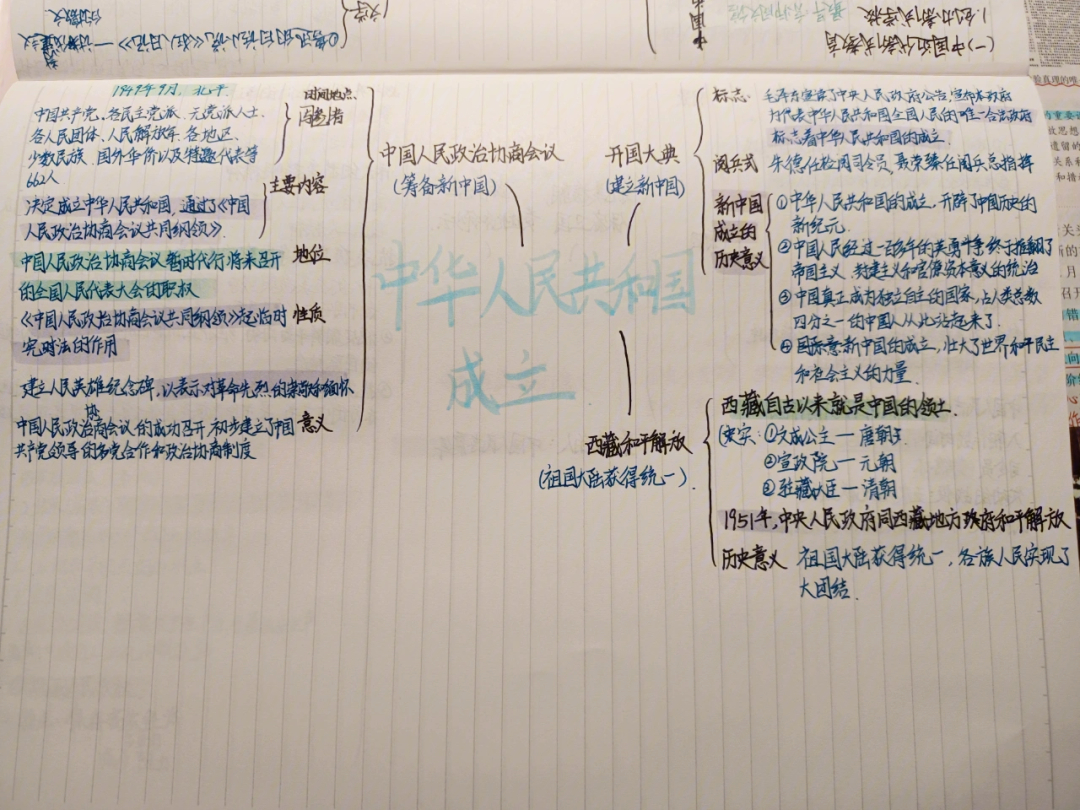 中华人民共和国
成立
中国人民政治协商会议
(筹备新中国)
时间地点
1949年9月,北平.
中国共产党、各民主党派、无党派人士
各人民团体、人民解放军、各地区、
少数民族、国外华侨以及特邀代表等
662人
主要内容
决定成立中华人民共和国,通过了《中国
人民政治协商会议共同纲领》.
地位
中国人民政治协商会议暂时代行将来召开
的全国人民代表大会的职权
性质
《中国人民政治协商会议共同纲领》起临时
宪法的作用
建立人民英雄纪念碑,以表示对革命先烈的崇敬和缅怀
意义
中国人民政治协商会议的成功召开,初步建立了中国
共产党领导的多党合作和政治协商制度
开国大典
(建立新中国)
标志
毛泽东宣读了中央人民政府公告,宣布本政府
为代表中华人民共和国全国人民的唯一合法政府
标志着中华人民共和国的成立.
阅兵式
朱德任检阅司令员,聂荣臻任阅兵总指挥
新中国
成立的
历史意义
①中华人民共和国的成立,开辟了中国历史的
新纪元.
②中国人民经过一百多年的英勇斗争终于推翻了
帝国主义、封建主义和官僚资本主义的统治
③中国真正成为独立自主的国家,占人类总数
四分之一的中国人从此站起来了.
④国际意:新中国的成立,壮大了世界和平民主
和社会主义的力量.
西藏和平解放
(祖国大陆获得统一).
西藏自古以来就是中国的领土.
史实:①文成公主—唐朝
②宣政院—元朝
③驻藏大臣—清朝
1951年,中央人民政府同西藏地方政府和平解放
历史意义
祖国大陆获得统一,各族人民实现了
大团结.
(一)中国近代新式教育
1.创办新式学校